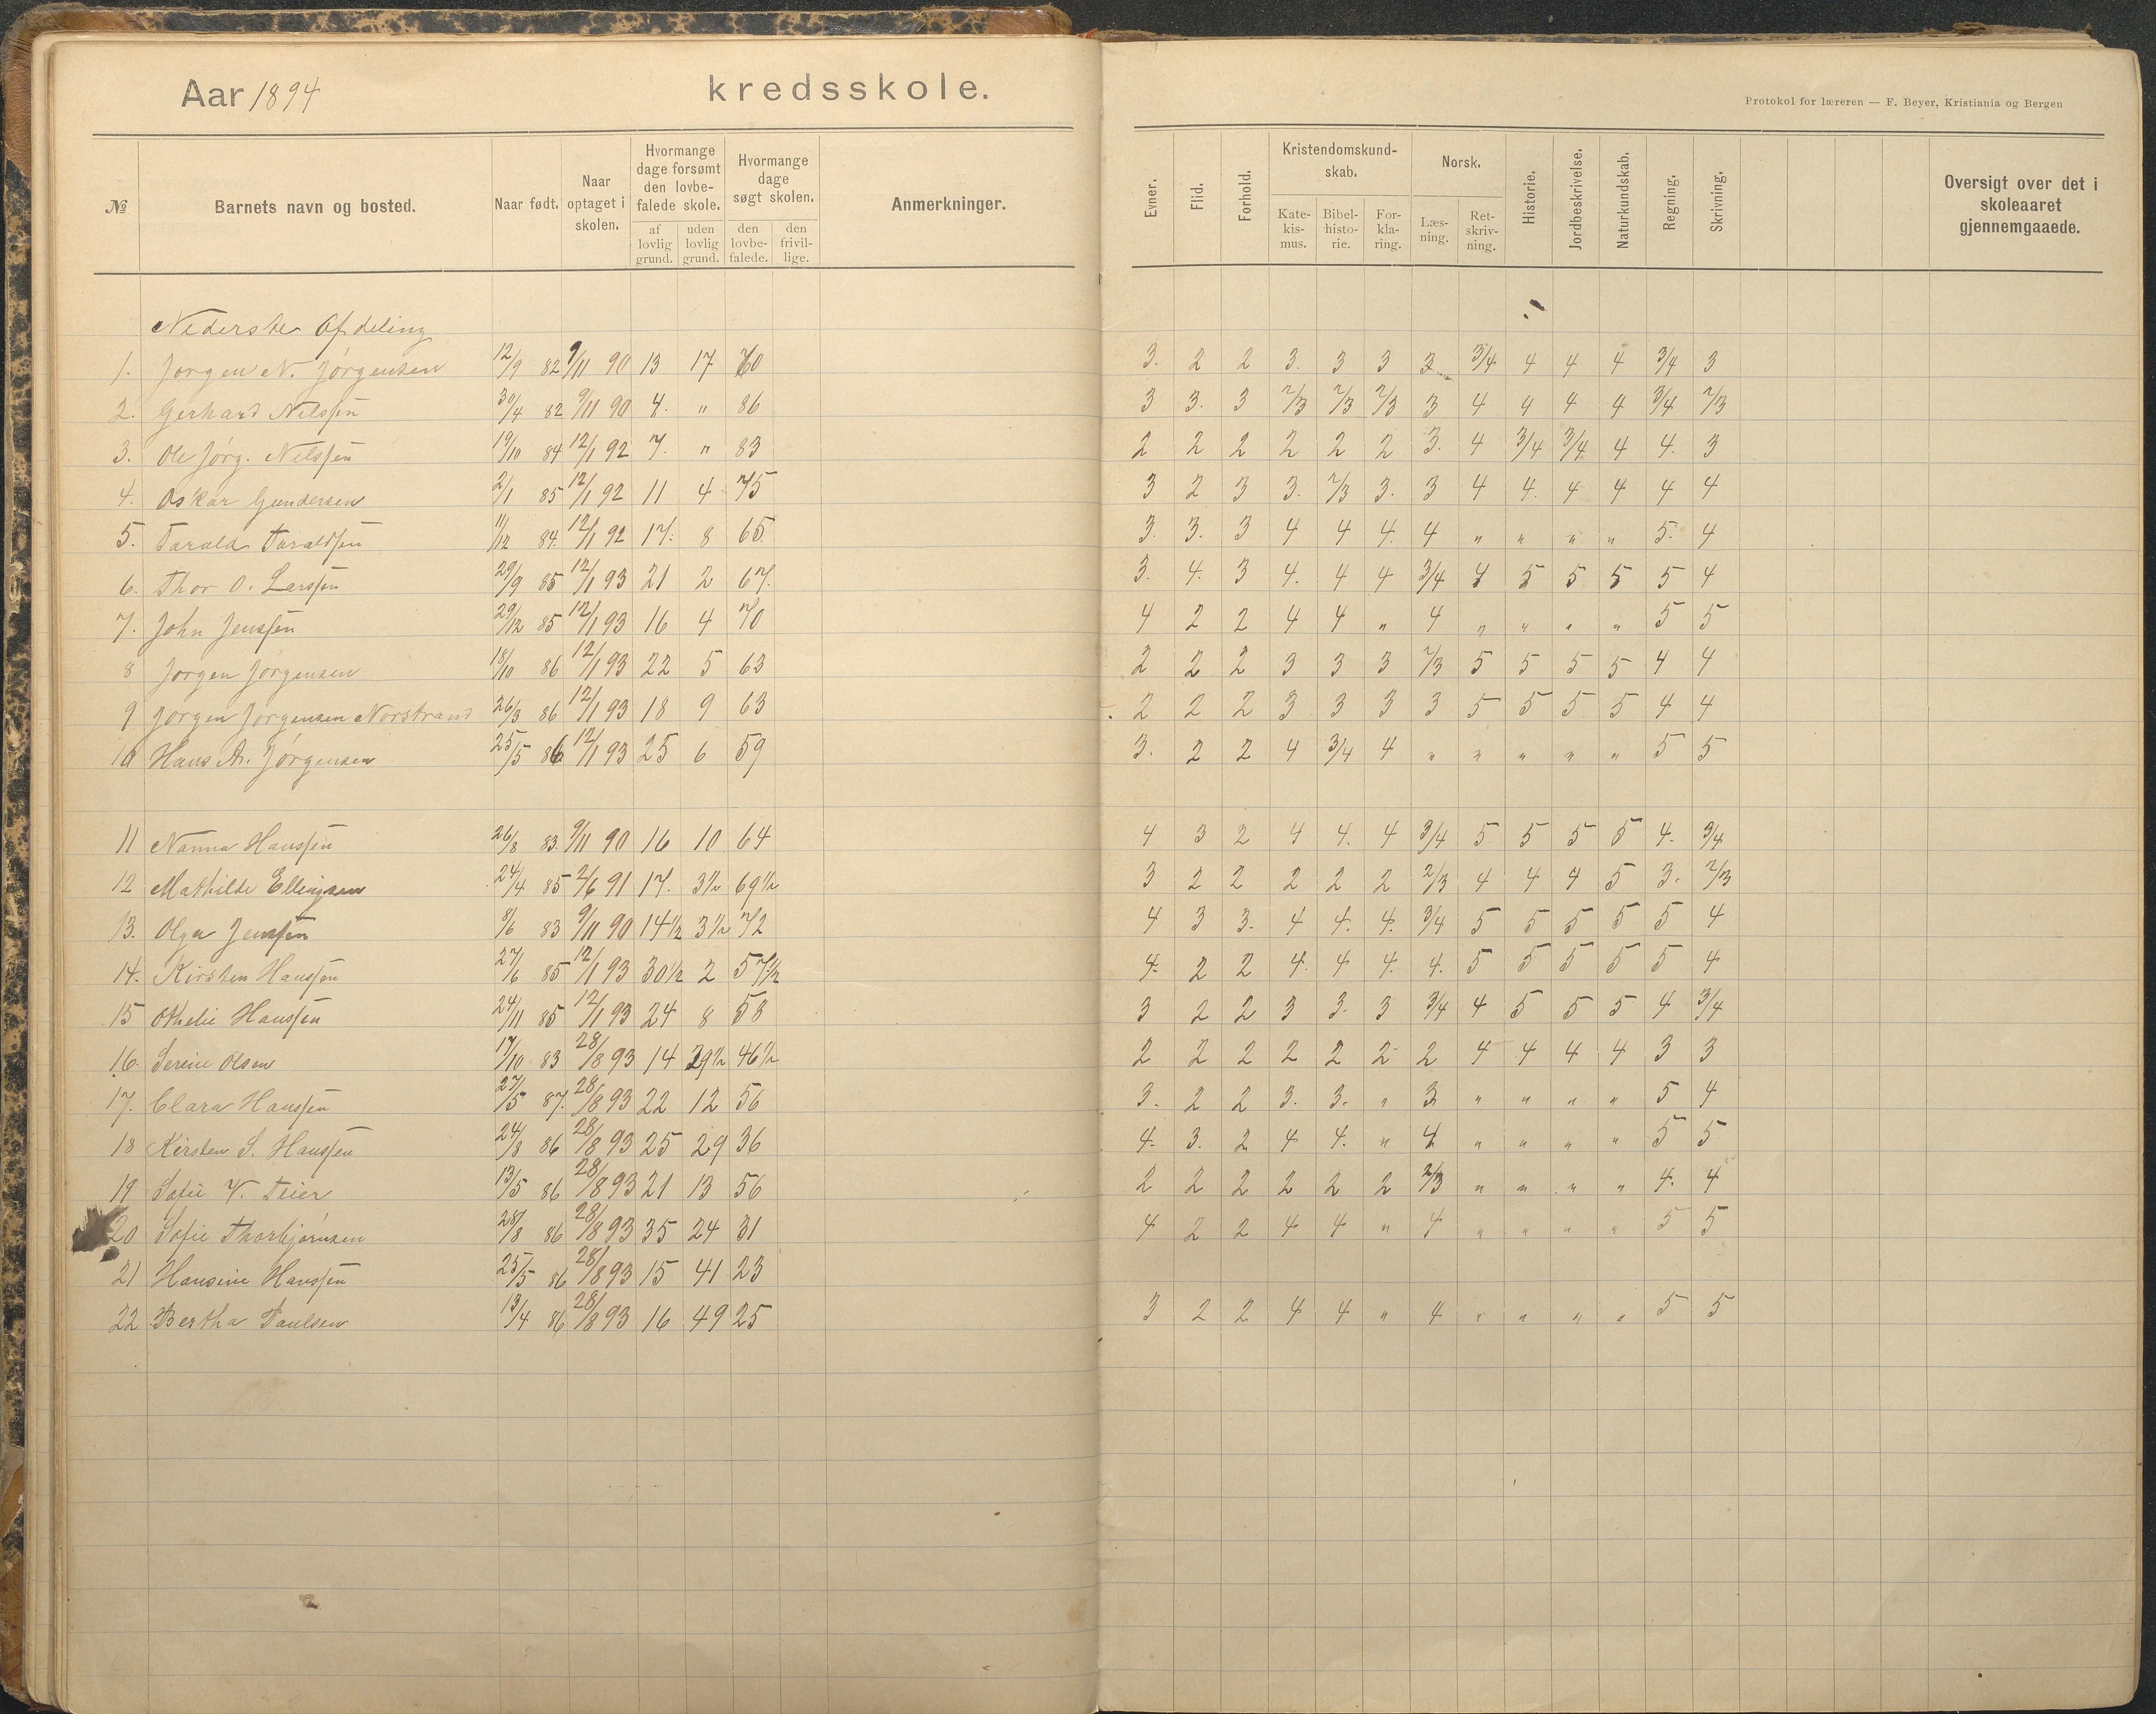 Aar 1894 kredsskole.
Protokol for læreren — F. Beyer, Kristiania og Bergen
№ Barnets navn og bosted. Naar født. Naar optaget i skolen. Hvormange dage forsømt den lovbefalede skole. af lovlig grund. uden lovlig grund. Hvormange dage søgt skolen. den lovbefalede. den frivillige. Anmerkninger. Evner. Flid. Forhold. Kristendomskundskab. Katekismus. Bibelhistorie. Forklaring. Norsk. Læsning. Retskrivning. Historie. Jordbeskrivelse. Naturkundskab. Regning. Skrivning. Oversigt over det i skoleaaret gjennemgaaede.
Nederste Afdeling
1. Jørgen N. Jørgensen 12/9 82 9/11 90 13 17 70 3. 2 2 3. 3 3 3 3/4 4 4 4 3/4 3
2. Gerhard Nilssen 30/4 82 9/11 90 4. " 86 3 3. 3 2/3 2/3 2/3 3 4 4 4 4 3/4 2/3
3. Ole Jørg. Nilssen 19/10 84 12/1 92 7. " 83 2 2 2 2 2 2 3. 4 3/4 3/4 4 4. 3
4. Oskar Gundersen 2/1 85 12/1 92 11 4 75 3 2 3 3. 2/3 3. 3 4 4. 4 4 4 4
5. Tarald Taraldsen 11/12 84. 12/1 92 17. 8 65. 3. 3. 3 4 4 4. 4 " " " " 5. 4
6. Thor O. Larssen 29/9 85 12/1 93 21 2 67. 3. 4. 3 4. 4 4 3/4 4 5 5 5 5 4
7. John Jenssen 29/12 85 12/1 93 16 4 70 4 2 2 4 4 " 4 " " " " 5 5
8 Jørgen Jørgensen 18/10 86 12/1 93 22 5 63 2 2 2 3 3 3 2/3 5 5 5 5 4 4
9 Jørgen Jørgensen Norstrand 26/3 86 12/1 93 18 9 63 2 2 2 3 3 3 3 5 5 5 5 4 4
10 Hans A. Jørgensen 25/5 86 12/1 93 25 6 59 3. 2 2 4 3/4 4 " " " " " 5 5
11 Nanna Hanssen 26/8 83. 9/11 90 16 10 64 4 3 2 4 4. 4 3/4 5 5 5 5 4. 3/4
12 Mathilde Ellingsen 24/4 85 2/6 91 17. 3 1/2 69 1/2 3 2 2 2 2 2 2/3 4 4 4 5 3. 2/3
13. Olga Jenssen 8/6 83 9/11 90 14 1/2 3 1/2 72 4 3 3. 4 4. 4. 3/4 5 5 5 5 5 4
14. Kirsten Hanssen 27/6 85 12/1 93 30 1/2 2 57 1/2 4. 2 2 4. 4 4. 4. 5 5 5 5 5 4
15 Othelie Hanssen 24/11 85 12/1 93 24 8 58 3 2 2 3 3. 3 3/4 4 5 5 5 4 3/4
16. Serine Olsen 17/10 83 28/8 93 14 29 1/2 46 1/2 2 2 2 2 2 2 2 4 4 4 4 3 3
17. Clara Hanssen 27/5 87. 28/8 93 22 12 56 3. 2 2 3. 3. " 3 " " " " 5 4
18 Kirsten S. Hanssen 24/8 86 28/8 93 25 29 36 4. 3. 2 4 4. " 4 " " " " 5 5
19 Sofie V. Feier 13/5 86 28/8 93 21 13 56 2 2 2 2 2 2 2/3 " " " " 4. 4
20 Sofie Thorbjørnsen 28/8 86 28/8 93 35 24 31 4 2 2 4 4 " 4 " " " " 5 5
21 Hansine Hanssen 25/5 86 28/8 93 15 41 23
22 Bertha Paulsen 13/4 86 28/8 93 16 49 25 3 2 2 4 4 " 4 " " " " 5 5